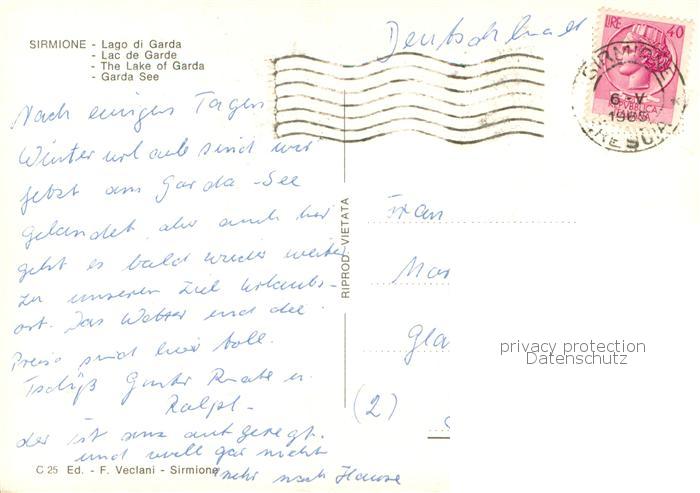 SIRMIONE - Lago di Garda
- Lac de Garde
- The Lake of Garda
- Garda See
Deutschland
LIRE 40
SIRMIONE
6 - V
1965
BRESCIA
REPUBBLICA
ITALIANA
Nach einigen Tagen
Winterurlaub sind wir
jetzt am Garda-See
gelandet, aber auch hier
geht es bald wieder weiter
zu unseren Ziel Urlaubs-
ort. Das Wetter und die
Preise sind hier toll.
Tschüß Gunter Renate u.
Ralph-
der ist ganz aufgeregt.
und will gar nicht
mehr nach Hause
RIPROD. VIETATA
Frau
Mar
Gla
(2)
privacy protection
Datenschutz
C 25 Ed. - F. Veclani - Sirmione